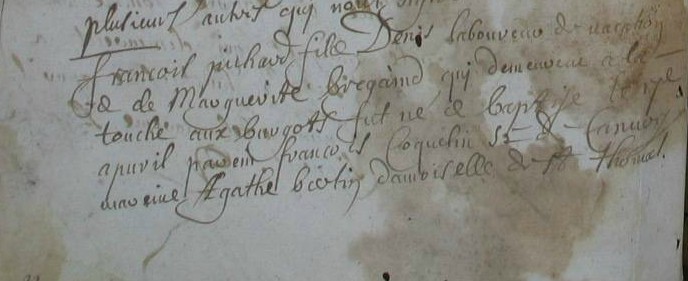 plusieurs autres qui nous
francois pichard fille Denis laboureur de vacation
& de Marguerite bregaind qui demeurent a la
touche aux burgots fut né & baptise le
apuril parein francois Coquelin Sr de
mareine Agathe bertin damoiselle de St thomas.